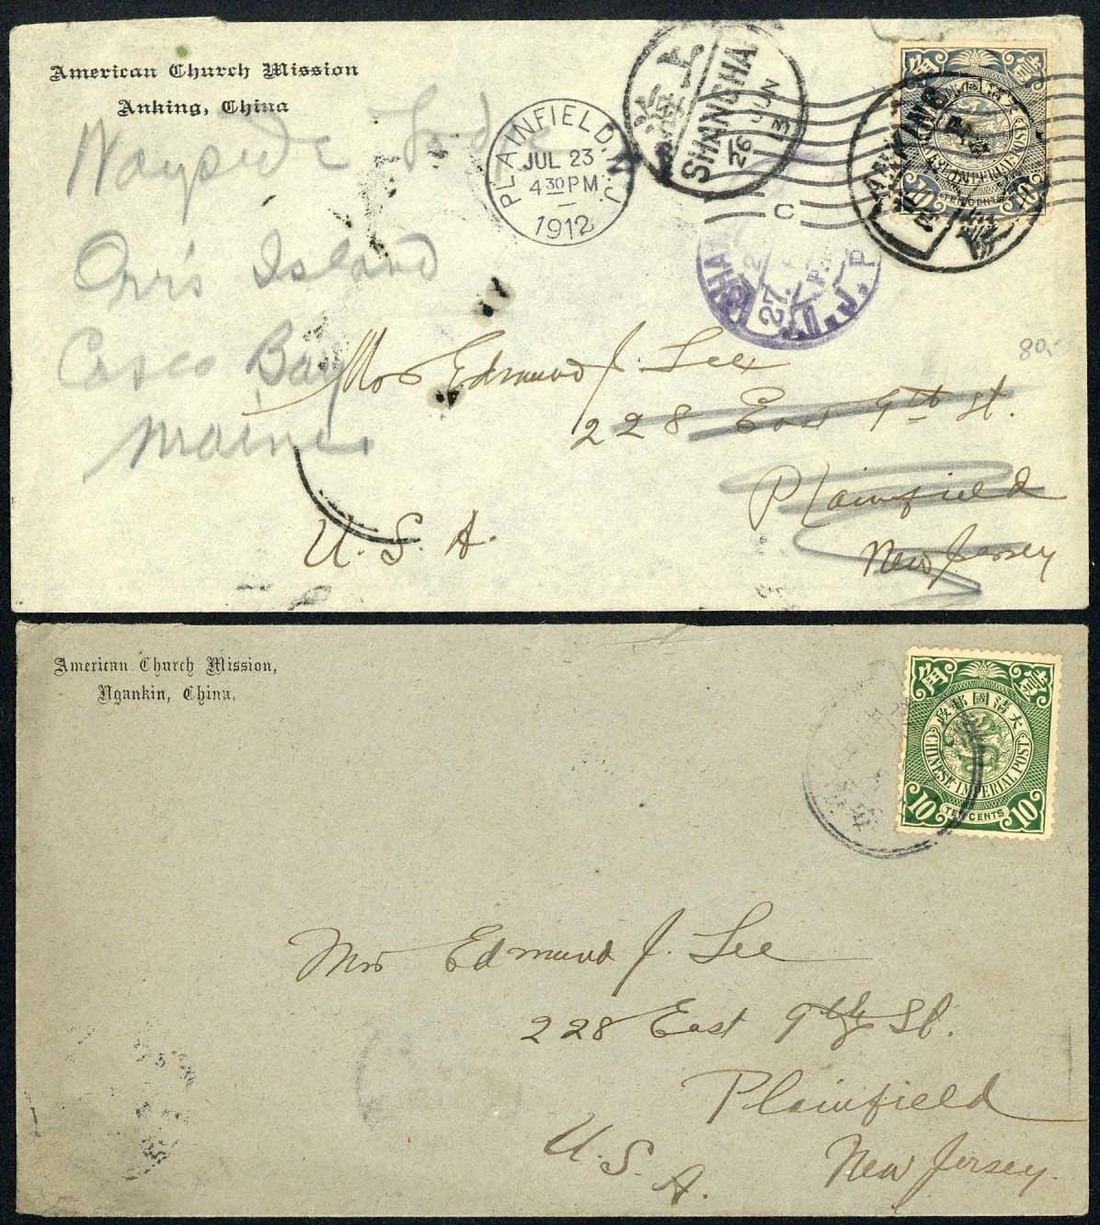 American Church Mission
Anking, China
Wayside
Orr's Island
Casco Bay
Maine
PLAINFIELD, N.J.
JUL 23
4 30 PM
1912
上海
SHANGHAI
26 JUN
13
C
27.
I.J.P
大清國郵政
CHINESE IMPERIAL POST
10 TEN CENTS 10
80.-
Mrs Edmund J. Lee
228 East 9th St.
Plainfield
New Jersey
U. S. A.
American Church Mission,
Ngankin, China.
角 壹
大清國郵政
CHINESE IMPERIAL POST
10 TEN CENTS 10
Mrs Edmund J. Lee
228 East 9th St.
Plainfield
New Jersey.
U. S. A.